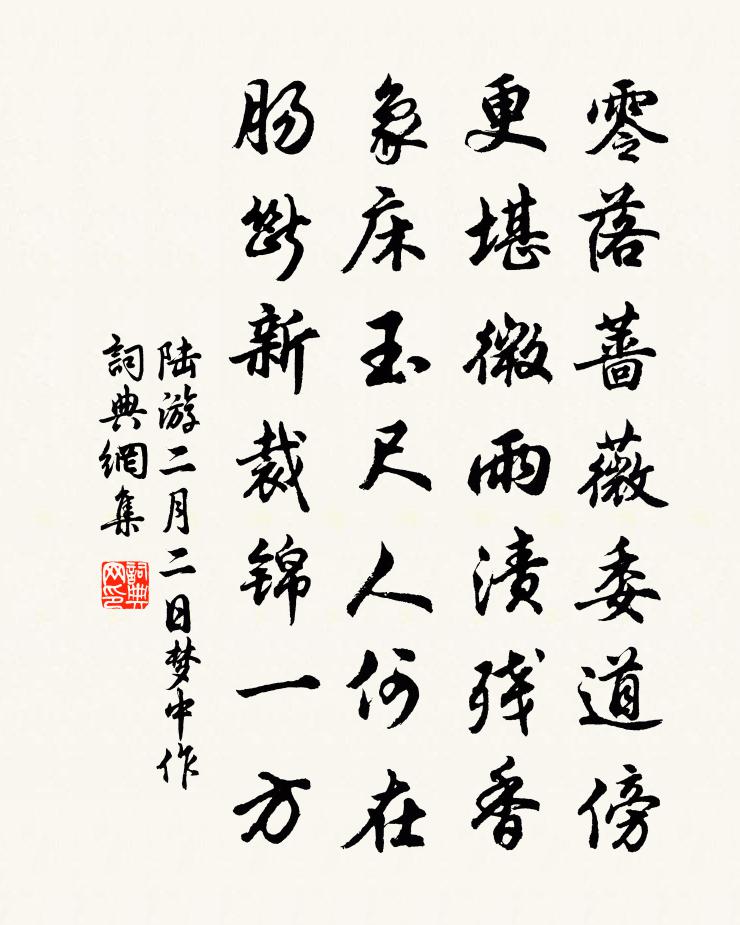 零落薔薇委道傍
更堪微雨漬残香
象床玉尺人何在
腸斷新裁锦一方
陆游二月二日梦中作
詞典網集
詞典网印